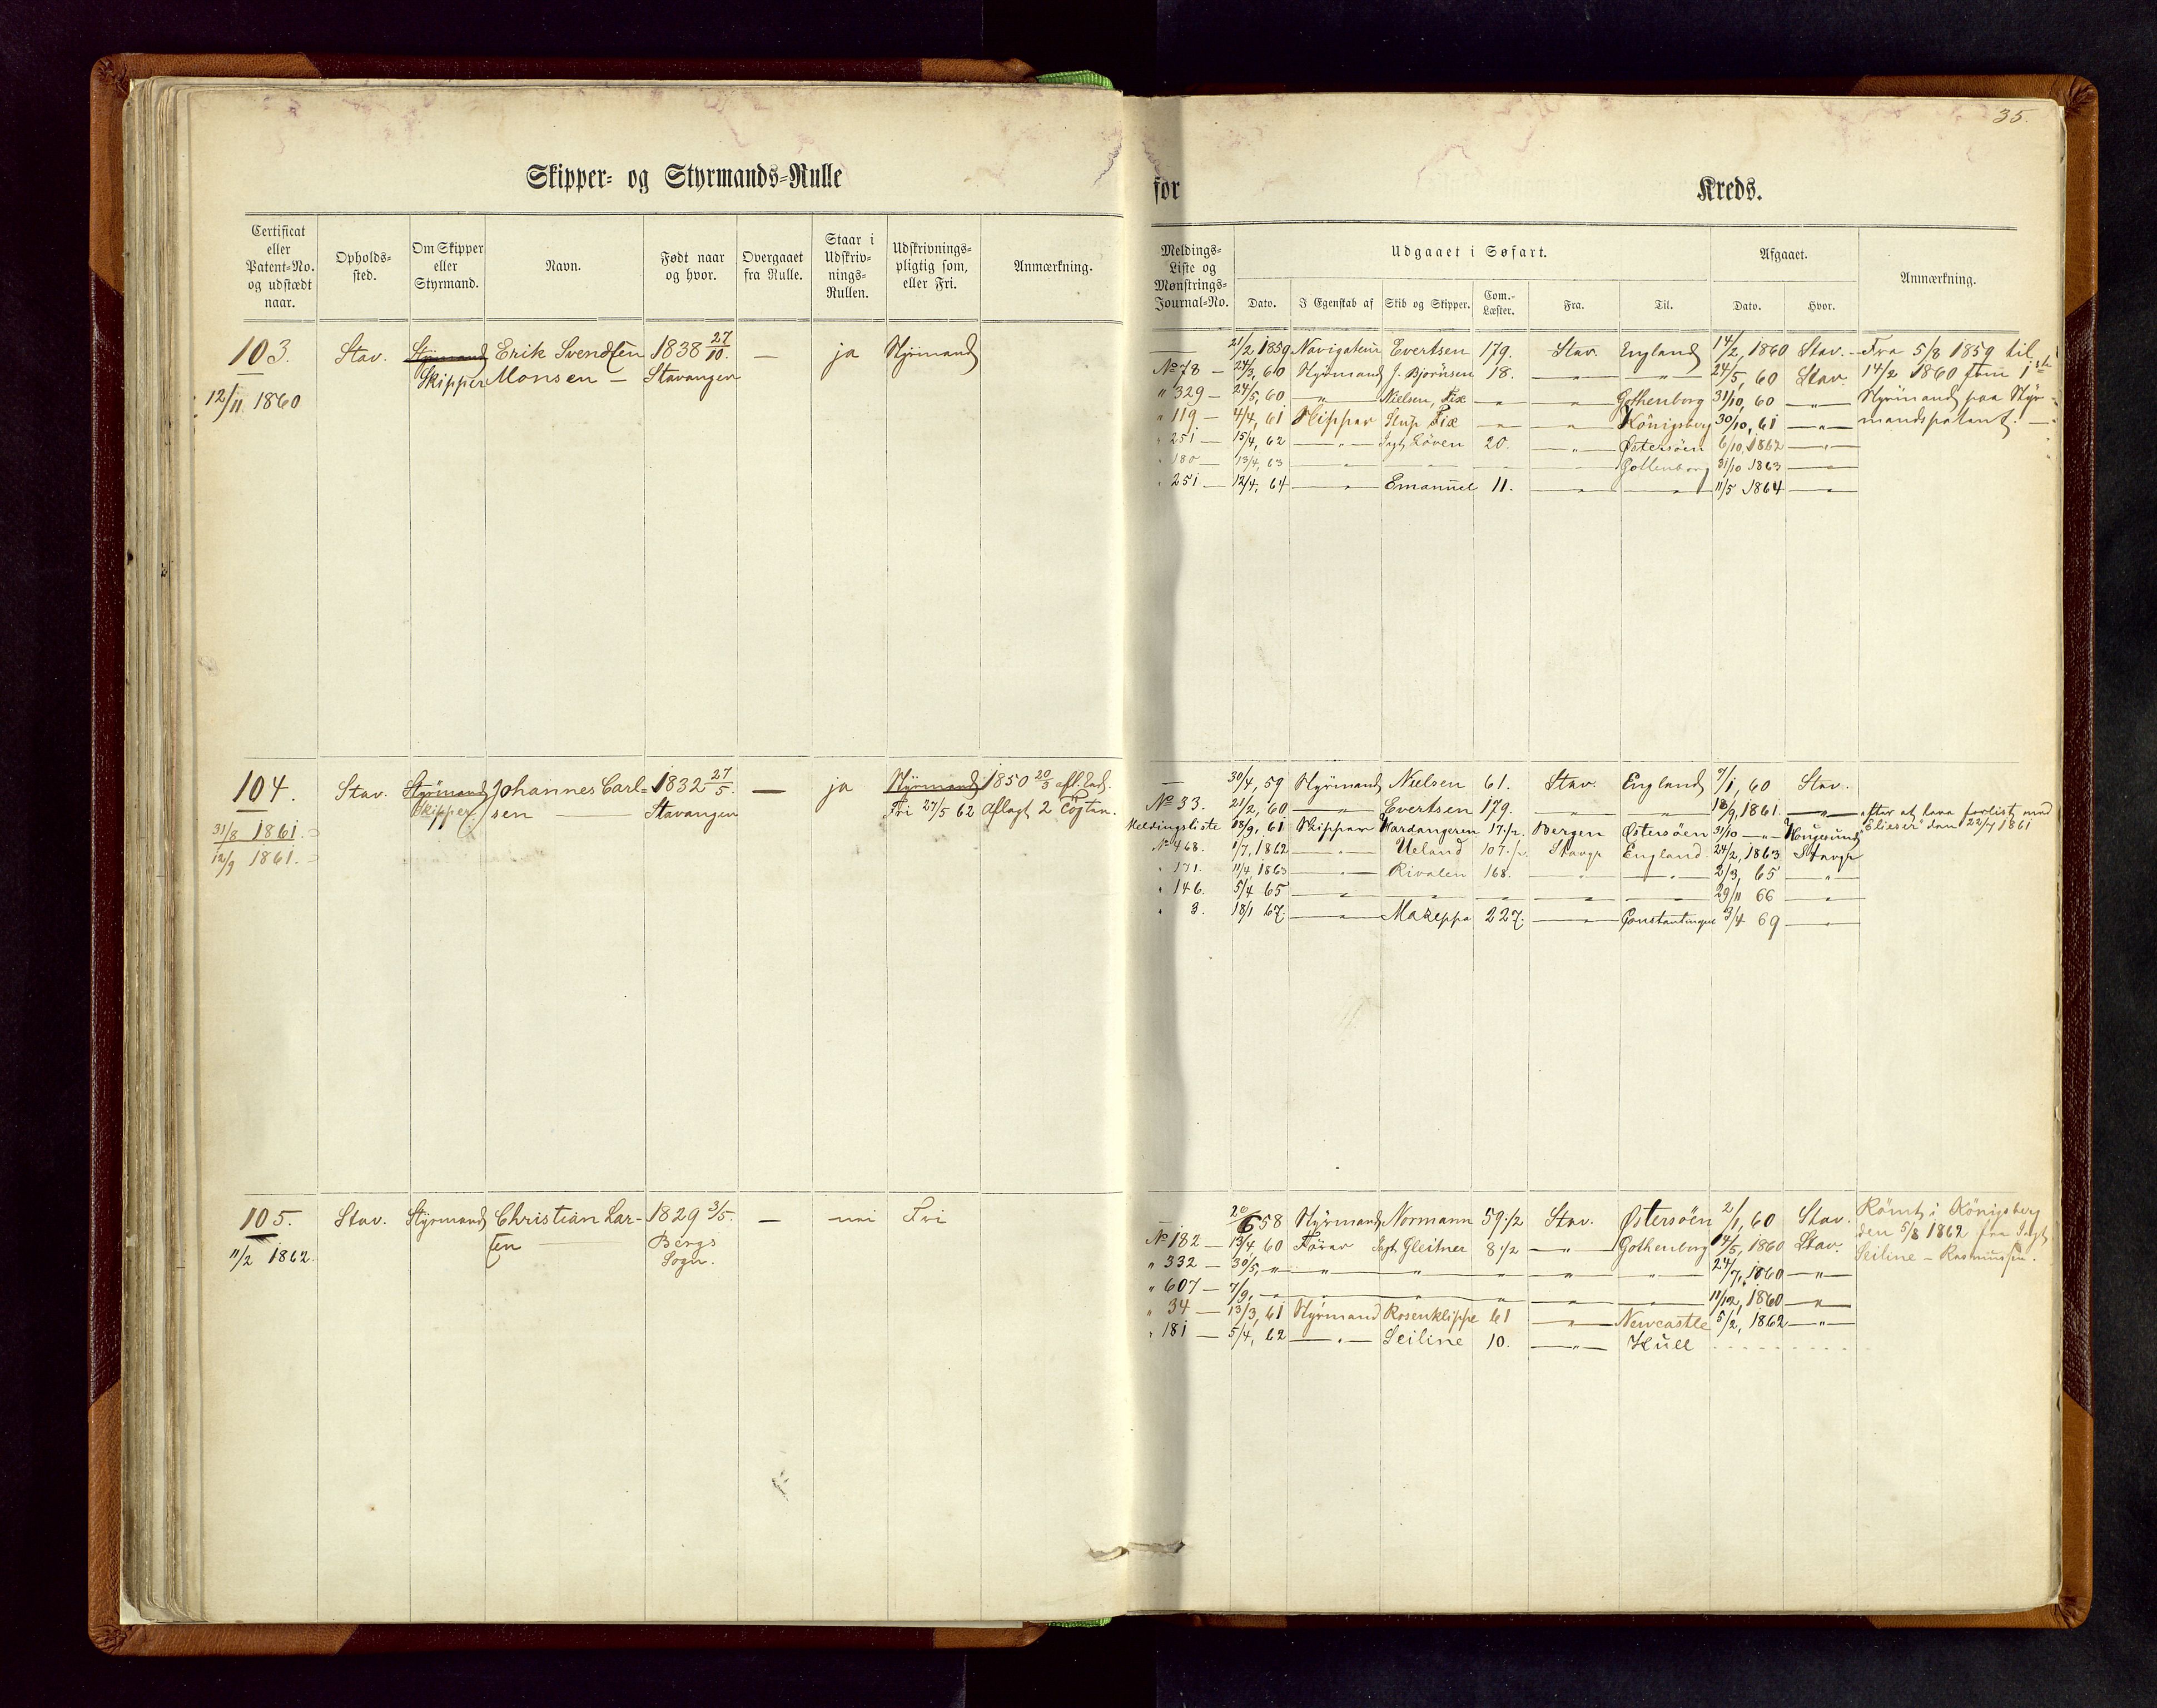 35.
Skipper- og Styrmands-Rulle
for Kreds.
Certificat eller Patent-No. og udstædt naar.
Opholds-sted.
Om Skipper eller Styrmand.
Navn.
Født naar og hvor.
Overgaaet fra Rulle.
Staar i Udskriv-nings-Rullen.
Udskrivnings-pligtig som, eller Fri.
Anmærkning.
Meldings-Liste og Mønstrings-Journal-No.
Udgaaet i Søfart.
Dato. I Egenskab af Skib og Skipper. Com.-Læster. Fra. Til.
Afgaaet.
Dato. Hvor.
Anmærkning.
103. Stav. Styrmand Erik Svendsen 1838 27/10. — ja Styrmand
Skipper Monsen — Stavanger
12/11 1860
— 21/2 1859 Navigateur Evertsen 179. Stav. England 14/2, 1860 Stav. — Fra 5/8 1859 til
No 78 — 24/3, 60 Styrmand J. Bjornsen 18. — " — — " — 24/5, 60 Stav. 14/2 1860 som 1ste
" 329 — 24/5, 60 — " — Nielsen, Fix — " — — " — Gothenborg 31/10, 60 — " — Styrmand paa Styr-
" 119 — 4/4, 61 Skipper Slup Fix — " — — " — Königsberg 30/10, 61 — " — mandspatent. —
" 251 — 15/4, 62 — " — Jagt Löven 20. — " — Østersöen 6/10, 1862 — " —
" 180 — 13/4, 63 — " — — — — Gottenborg 31/10 1863 — " —
" 251 — 12/4, 64 — " — Emanuel 11. — " — — " — 11/5 1864 — " —
104. Stav. Styrmand Johannes Carl- 1832 27/5. — ja Styrmand 1850 20/3 afl. Ed.
Skipper sen — Stavanger Fri 27/5 62 Aflagt 2 Togter.
31/8 1861.
12/9 1861.
— 30/4, 59 Styrmand Nielsen 61. Stav. England 7/1, 60 Stav.
No 33. 21/2, 60 — " — Evertsen 179. — " — — " — 18/9, 1861. — " — efter at have forlist med
Meldingsliste 18/9, 61 Skipper Hardangeren 17 1/2. Bergen Østersöen 31/10 — " — Haugesund "Elieser" den 22/7 1861
No 468. 1/7, 1862 — " — Ueland 107 1/2. Stavgr England 24/2, 1863 Stavgr
" 171. 11/4, 1863 — " — Rivalen 168. — " — — " — 2/3, 65 — " —
" 146. 5/4 65 — " — — " — — " — — " — — " — 29/11 66 — " —
" 3. 18/1 67. — " — Mazeppa 227. — " — Constantinopel 3/4 69 — " —
105. Stav. Styrmand Christian Lar- 1829 3/5. — nei Fri
sen — Bergs
11/2 1862. Sogn.
— 20/6 58 Styrmand Normann 59 1/2 Stav. Østersöen 2/1, 60 Stav. Römt i Königsberg
No 182 — 13/4, 60 Förer Jagt Gleitner 8 1/2 — " — Gothenborg 14/5, 1860 Stav. den 5/8 1862 fra Jagt
" 332 — 30/5, " — " — — " — — " — — " — — " — 24/7, 1860 — " — Seiline — Rasmussen.
" 607 — 7/9, — " — — " — — " — — " — — " — 11/12, 1860 — " —
" 34 — 13/3, 61 Styrmand Rosenklippe 61 — " — Newcastle 5/2, 1862 — " —
" 181 — 5/4, 62 — " — Seiline 10. — " — Hull